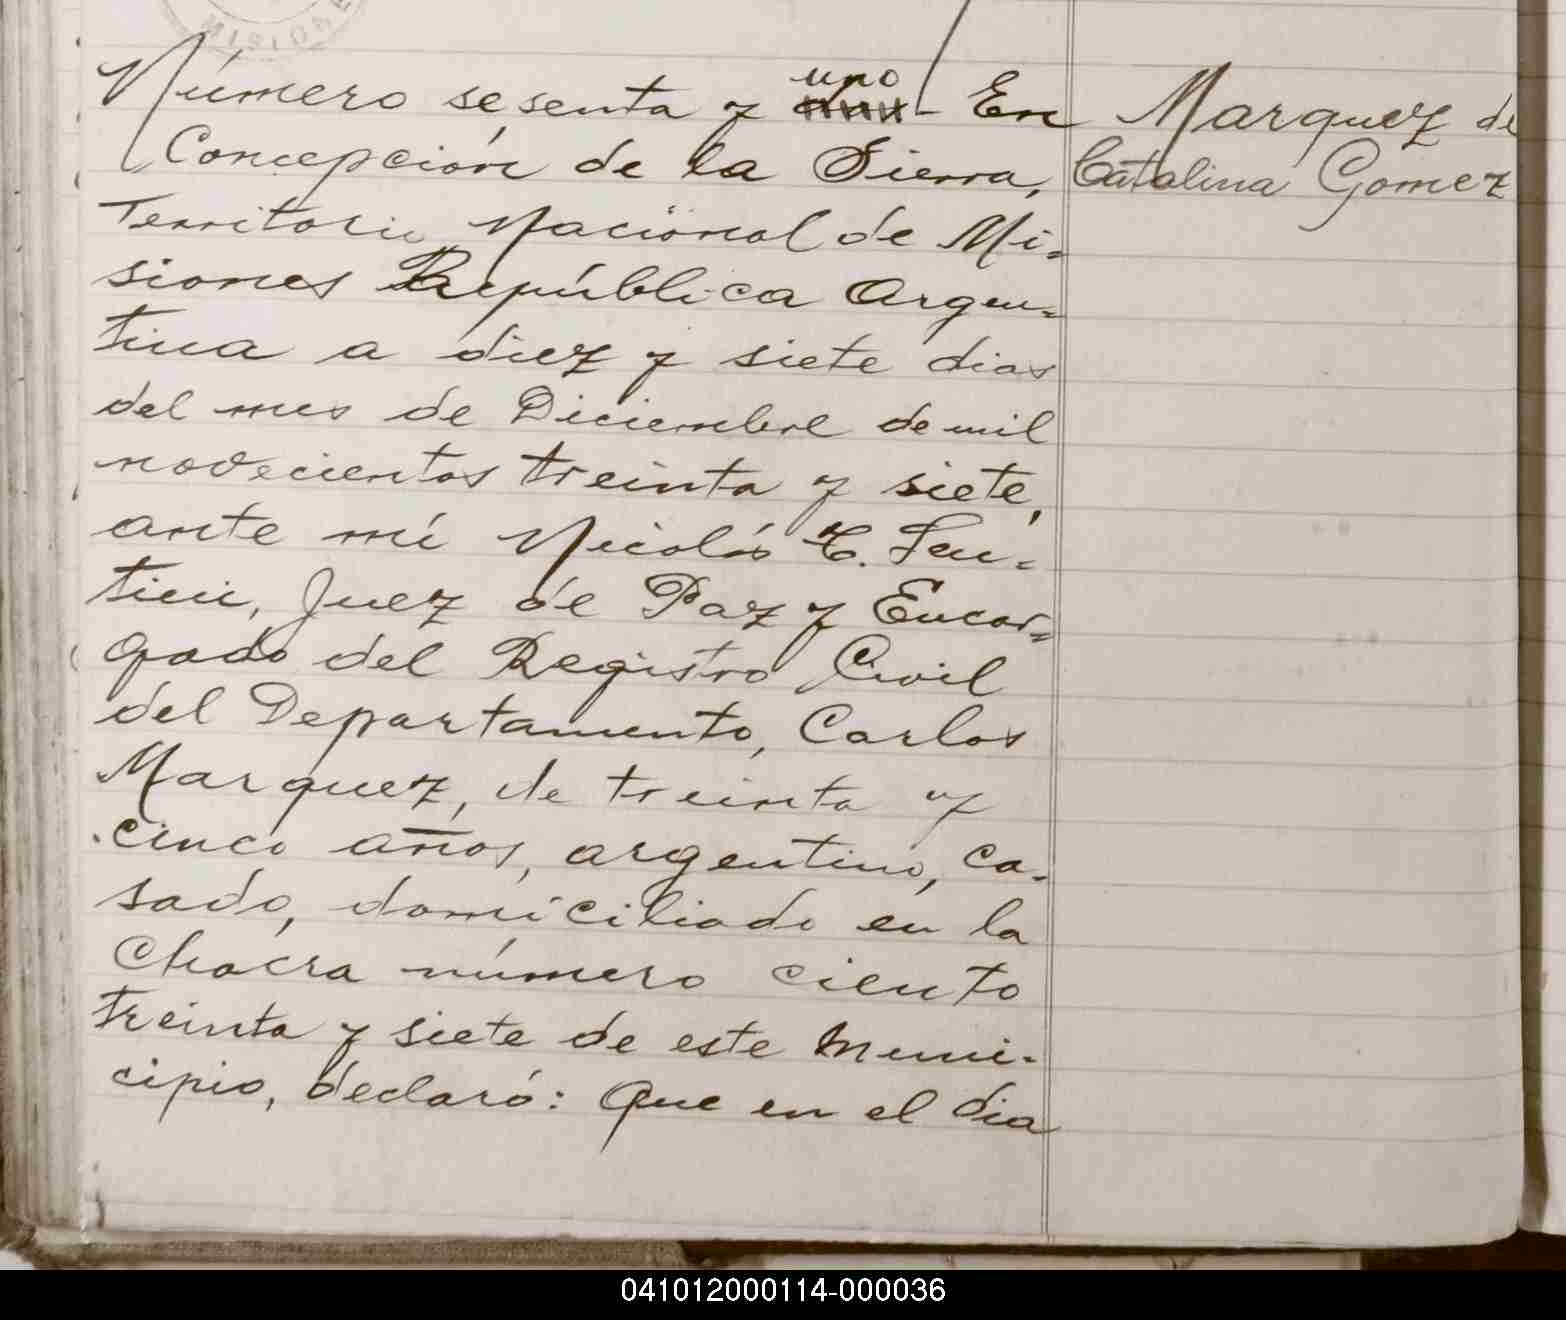 MISIONE
Número sesenta y uno - En
Concepción de la Sierra,
Territorio Nacional de Mi=
siones República Argen=
tina a diez y siete dias
del mes de Diciembre de mil
novecientos treinta y siete,
ante mí Nicolás
Juez de Paz y Encar=
gado del Registro Civil
del Departamento, Carlos
Marquez, de treinta y
cinco años, argentino, ca-
sado, domiciliado en la
Chacra número ciento
treinta y siete de este Muni-
cipio, declaró: Que en el dia
Marquez de
Catalina Gomez
041012000114-000036